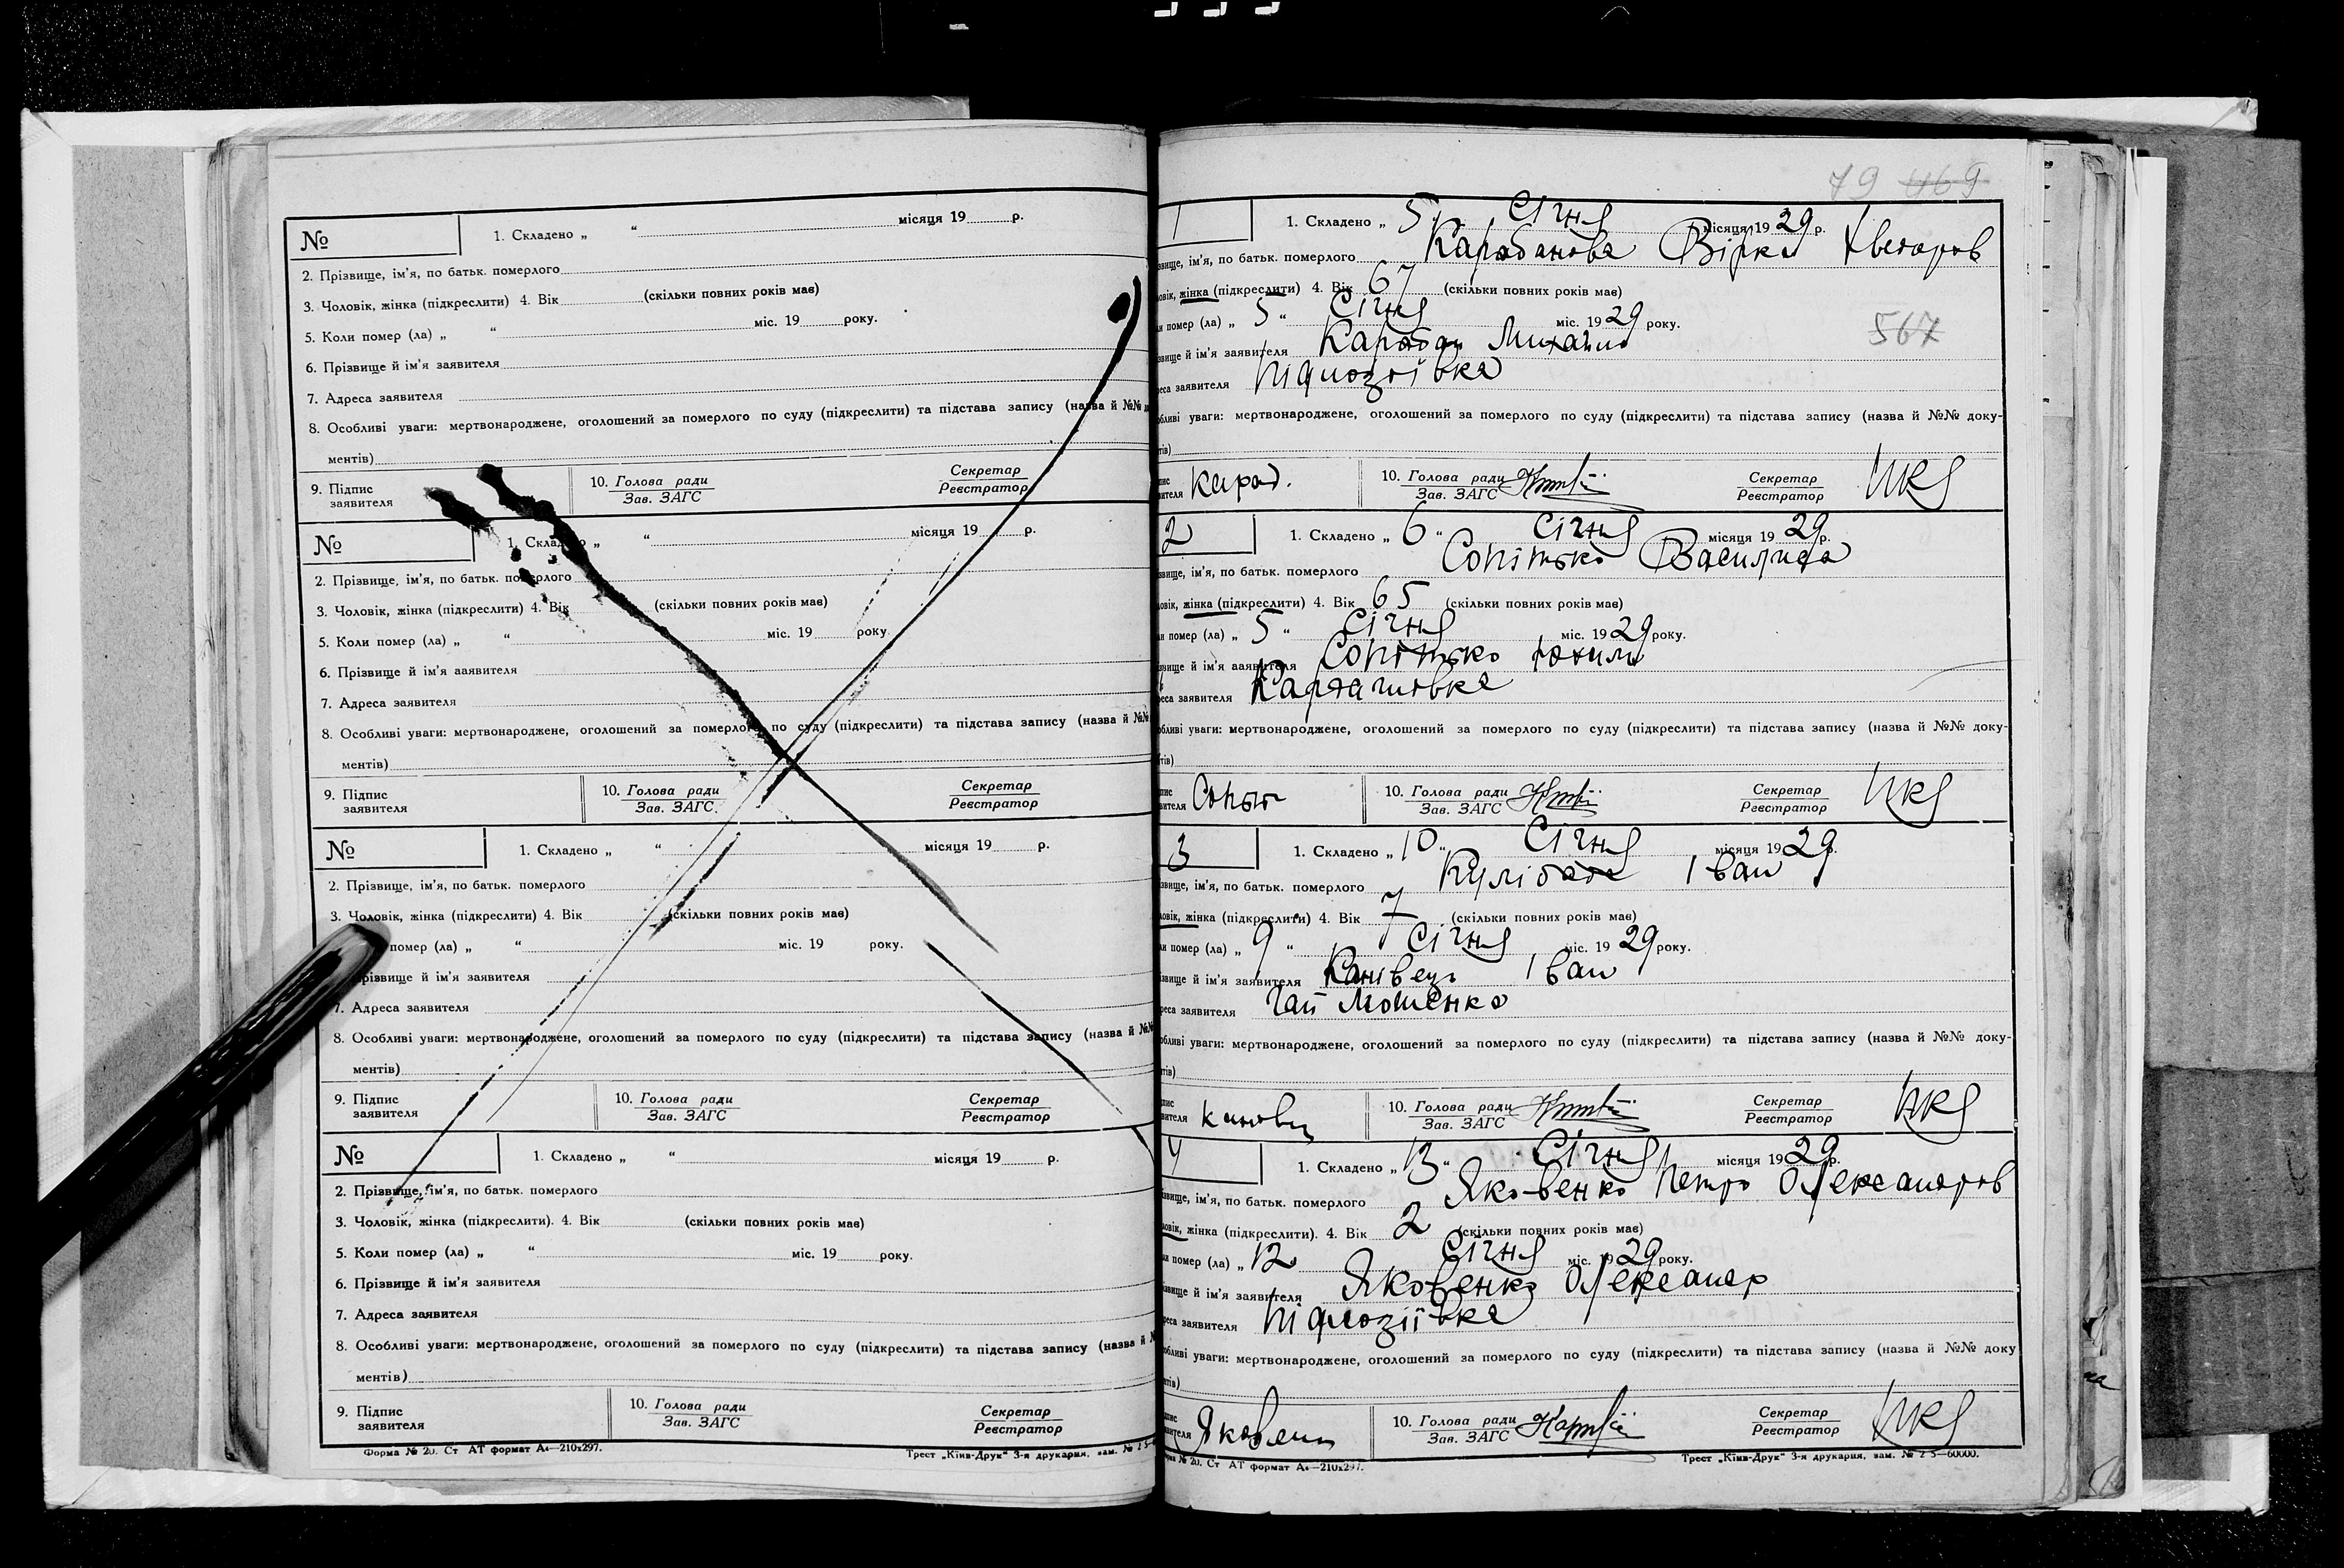 № 1. Складено „ “ місяця 19 р.
2. Прізвище, ім'я, по батьк. померлого
3. Чоловік, жінка (підкреслити) 4. Вік (скільки повних років має)
5. Коли помер (ла) „ “ міс. 19 року.
6. Прізвище й ім'я заявителя
7. Адреса заявителя
8. Особливі уваги: мертвонароджене, оголошений за померлого по суду (підкреслити) та підстава запису (назва й №№
ментів)
9. Підпис заявителя 10. Голова ради Зав. ЗАГС Секретар Реєстратор
№ 1. Складено „ “ місяця 19 р.
2. Прізвище, ім'я, по батьк. померлого
3. Чоловік, жінка (підкреслити) 4. Вік (скільки повних років має)
5. Коли помер (ла) „ “ міс. 19 року.
6. Прізвище й ім'я ааявителя
7. Адреса заявителя
8. Особливі уваги: мертвонароджене, оголошений за померлого по суду (підкреслити) та підстава запису (назва й №№
ментів)
9. Підпис заявителя 10. Голова ради Зав. ЗАГС. Секретар Реєстратор
№ 1. Складено „ “ місяця 19 р.
2. Прізвище, ім'я, по батьк. померлого
3. Чоловік, жінка (підкреслити) 4. Вік (скільки повних років має)
помер (ла) „ “ міс. 19 року.
різвище й ім'я заявителя
7. Адреса заявителя
8. Особливі уваги: мертвонароджене, оголошений за померлого по суду (підкреслити) та підстава запису (назва й №№
ментів)
9. Підпис заявителя 10. Голова ради Зав. ЗАГС Секретар Реєстратор
№ 1. Складено „ “ місяця 19 р.
2. Прізвище, ім'я, по батьк. померлого
3. Чоловік, жінка (підкреслити). 4. Вік (скільки повних років має)
5. Коли помер (ла) „ “ міс. 19 року.
6. Прізвище й ім'я заявителя
7. Адреса заявителя
8. Особливі уваги: мертвонароджене, оголошений за померлого по суду (підкреслити) та підстава запису (назва й
ментів)
9. Підпис заявителя 10. Голова ради Зав. ЗАГС Секретар Реєстратор
Форма № 20. Ст АТ формат А4—210x297. Трест „Київ-Друк“ 3-я друкарня, зам. №
79 469
1 1. Складено „ 5 “ Січня місяця 19 29 р.
звище, ім'я, по батьк. померлого Карабанова Вірка
овік, жінка (підкреслити) 4. Вік 67 (скільки повних років має)
ли помер (ла) „ 5 “ Січня міс. 19 29 року.
звище й ім'я заявителя Карабан Михайло
567
реса заявителя Підлозіївка
обливі уваги: мертвонароджене, оголошений за померлого по суду (підкреслити) та підстава запису (назва й №№ доку-
тів)
пис вителя Караб. 10. Голова ради Зав. ЗАГС Секретар Реєстратор
2 1. Складено „ 6 “ Січня місяця 19 29 р.
звище, ім'я, по батьк. померлого Сопітько Василиса
овік, жінка (підкреслити) 4. Вік 65 (скільки повних років має)
ли помер (ла) „ 5 “ Січня міс. 19 29 року.
звище й ім'я ааявителя Сопітько Юхим
реса заявителя Карташівка
обливі уваги: мертвонароджене, оголошений за померлого по суду (підкреслити) та підстава запису (назва й №№ доку-
тів)
пис вителя Сопіт 10. Голова ради Зав. ЗАГС Секретар Реєстратор
3 1. Складено „ 10 “ Січня місяця 19 29 р.
звище, ім'я, по батьк. померлого Кулібаба Іван
овік, жінка (підкреслити) 4. Вік 7 (скільки повних років має)
ли помер (ла) „ 9 “ Січня міс. 19 29 року.
звище й ім'я заявителя Канівець Іван
реса заявителя Гай Мошенка
обливі уваги: мертвонароджене, оголошений за померлого по суду (підкреслити) та підстава запису (назва й №№ доку-
тів)
пис вителя Канівец 10. Голова ради Зав. ЗАГС Секретар Реєстратор
4 1. Складено „ 13 “ Січня місяця 19 29 р.
звище, ім'я, по батьк. померлого Яковенко Петро Олександров
овік, жінка (підкреслити). 4. Вік 2 (скільки повних років має)
ли помер (ла) „ 12 Січня міс. 19 29 року.
звище й ім'я заявителя Яковенко Олександр
реса заявителя Підлозіївка
обливі уваги: мертвонароджене, оголошений за померлого по суду (підкреслити) та підстава запису (назва й №№ доку
тів)
пис вителя Яковенк 10. Голова ради Зав. ЗАГС Секретар Реєстратор
№ 20. Ст АТ формат А4—210x297. Трест „Київ-Друк“ 3-я друкарня, зам. № 2 5—60000.